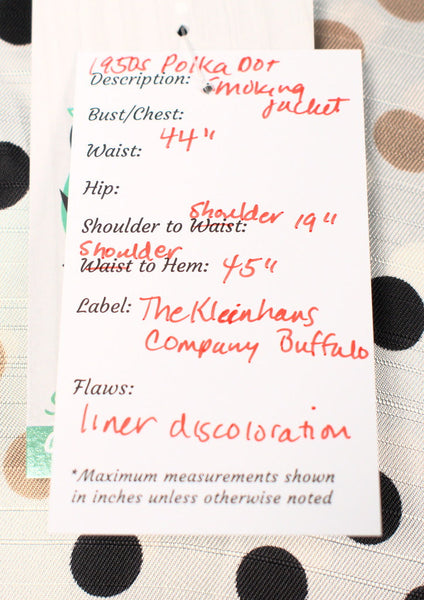 1950s Polka Dot
Description: Smoking
Jacket
Bust/Chest:
44"
Waist:
Hip:
Shoulder
Shoulder to Waist: 19"
Shoulder
Waist to Hem: 45"
Label: The Kleinhans
Company Buffalo
Flaws:
liner discoloration
*Maximum measurements shown
in inches unless otherwise noted